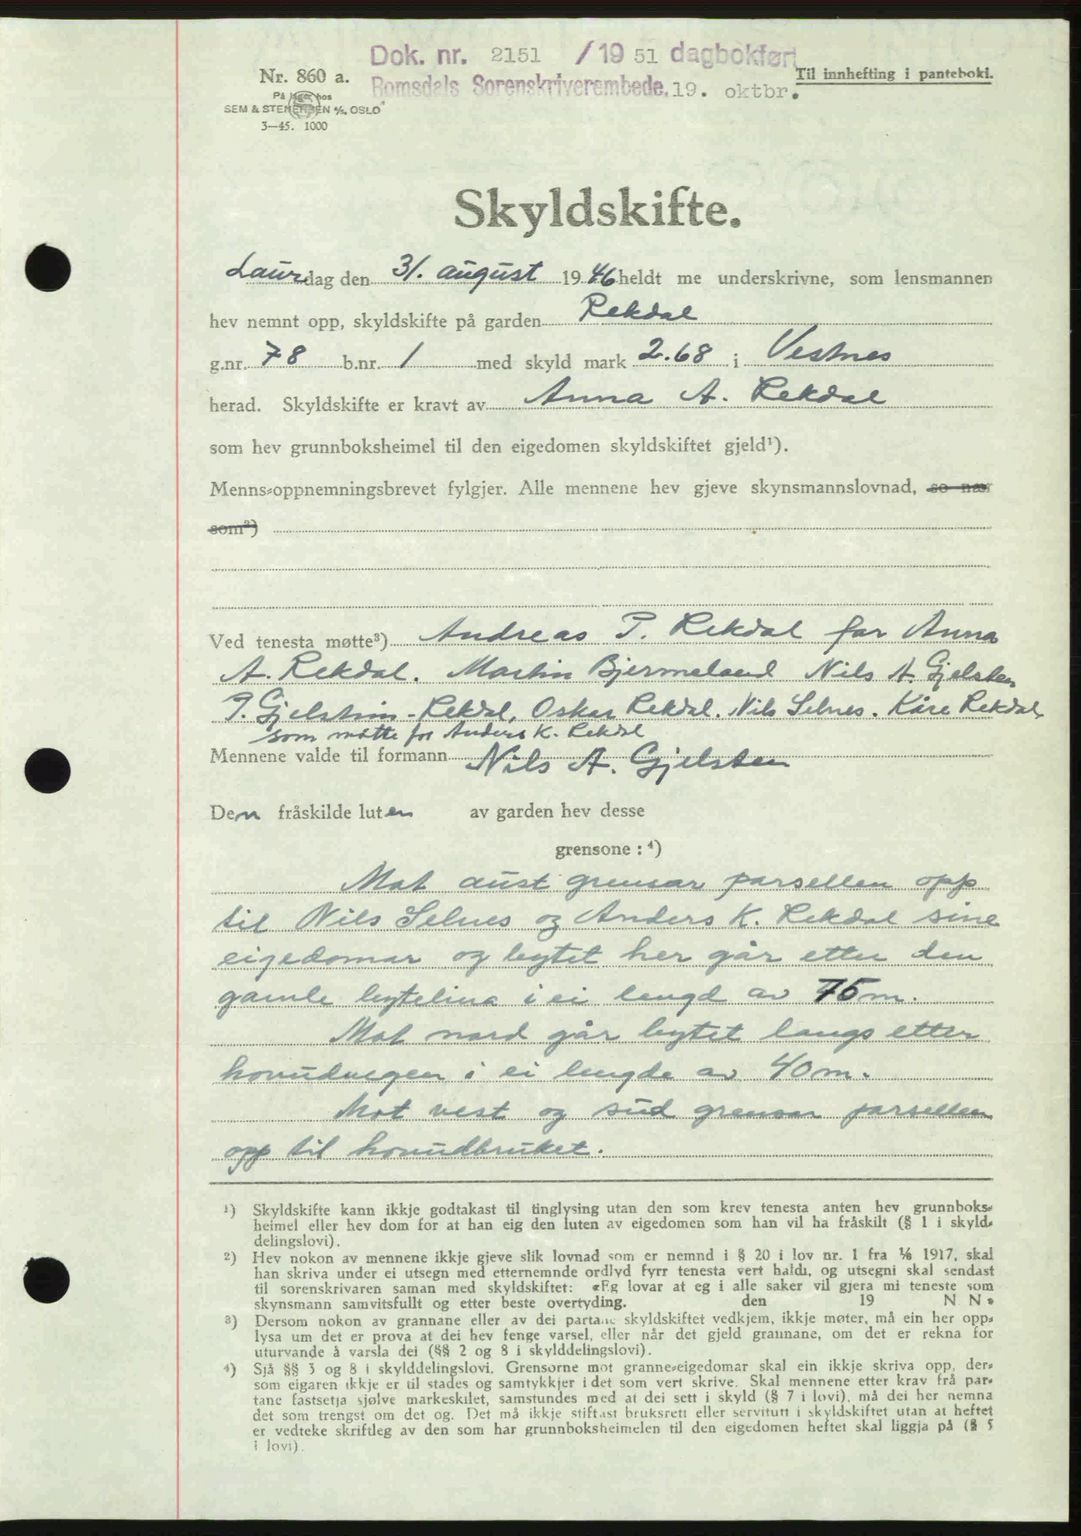 Dok. nr. 2151 / 19 51 dagbokført
Romsdals Sorenskriverembede. 19. oktbr.
Nr. 860 a.
Til innhefting i panteboki.
På lager hos
SEM & STENERSEN A/S, OSLO
3—45. 1000
Skyldskifte.
Laurdag den 31. august 1946 heldt me underskrivne, som lensmannen
hev nemnt opp, skyldskifte på garden Rekdal
g.nr. 78 b.nr. 1 med skyld mark 2.68 i Vestnes
herad. Skyldskifte er kravt av Anna A. Rekdal
som hev grunnboksheimel til den eigedomen skyldskiftet gjeld¹).
Menns-oppnemningsbrevet fylgjer. Alle mennene hev gjeve skynsmannslovnad, so nær
som²)
Ved tenesta møtte³) Andreas P. Rekdal for Anna
A. Rekdal. Martin Bjermeland Nils A. Gjelsten
P. Gjelstein-Rekdal, Oskar Rekdal. Nils Selnes. Kåre Rekdal
som møtte for Anders K. Rekdal
Mennene valde til formann Nils A. Gjelsten
Den fråskilde luten av garden hev desse
grensone : ⁴)
Mot aust grensar parsellen opp
til Nils Selnes og Anders K. Rekdal sine
eigedomar og bytet her går etter den
gamle bytelina i ei lengd av 75 m.
Mot nord går bytet langs etter
hovudvegen i ei lengde av 40 m.
Mot vest og sud grensar parsellen
opp til hovudbruket.
¹) Skyldskifte kann ikkje godtakast til tinglysing utan den som krev tenesta anten hev grunnboks-
heimel eller hev dom for at han eig den luten av eigedomen som han vil ha fråskilt (§ 1 i skyld-
delingslovi).
²) Hev nokon av mennene ikkje gjeve slik lovnad som er nemnd i § 20 i lov nr. 1 fra 1/6 1917, skal
han skriva under ei utsegn med etternemnde ordlyd fyrr tenesta vert haldi, og utsegni skal sendast
til sorenskrivaren saman med skyldskiftet: «Eg lovar at eg i alle saker vil gjera mi teneste som
skynsmann samvitsfullt og etter beste overtyding. den 19 N N.
³) Dersom nokon av grannane eller av dei partane skyldskiftet vedkjem, ikkje møter, må ein her opp-
lysa um det er prova at dei hev fenge varsel, eller når det gjeld grannane, om det er rekna for
uturvande å varsla dei (§§ 2 og 8 i skylddelingslovi).
⁴) Sjå §§ 3 og 8 i skylddelingslovi. Grensorne mot granne-eigedomar skal ein ikkje skriva opp, der-
som eigaren ikkje er til stades og samtykkjer i det som vert skrive. Skal mennene etter krav frå par-
tane fastsetja sjølve markeskilet, samstundes med at dei sett i skyld (§ 7 i lovi), må dei her nemna
det som trengst om det og. Det må ikkje stiftast bruksrett eller servitutt i skyldskiftet utan at heftet
er vedteke skriftleg av den som har grunnboksheimelen til den eigedomen heftet skal liggja på (§ 5
i lovi).